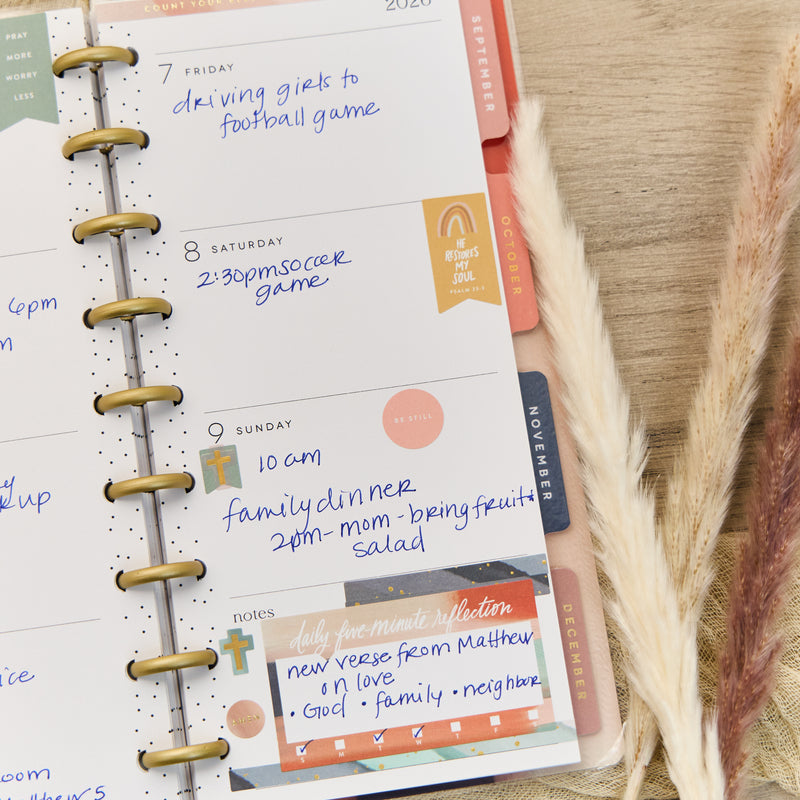 PRAY
MORE
WORRY
LESS
6pm
2026
7 FRIDAY
driving girls to
football game
8 SATURDAY
2:30pm soccer
game
HE
RESTORES
MY
SOUL
PSALM 23:3
9 SUNDAY
BE STILL
10 am
family dinner
2pm - mom - bring fruit
salad
notes
daily five-minute reflection
new verse from Matthew
on love
• God • family • neighbor
S M T W T F S
SEPTEMBER
OCTOBER
NOVEMBER
DECEMBER